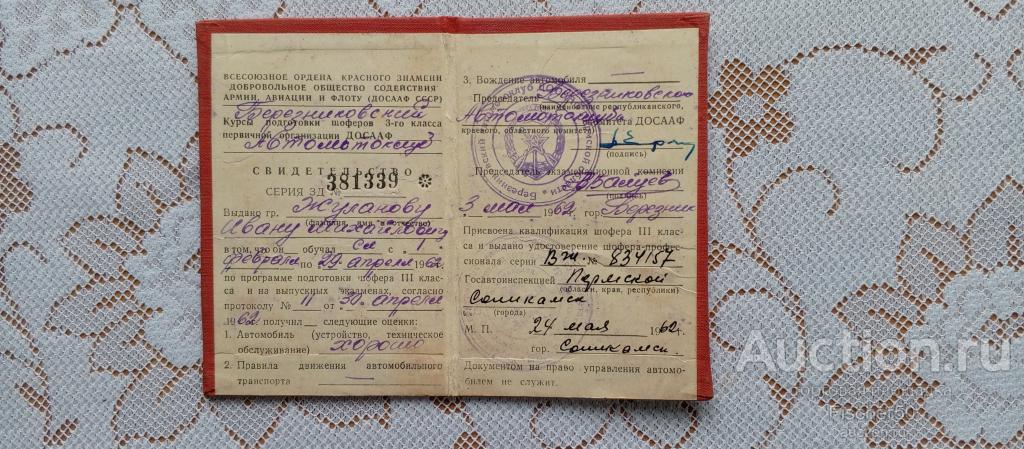 ВСЕСОЮЗНОЕ ОРДЕНА КРАСНОГО ЗНАМЕНИ
ДОБРОВОЛЬНОЕ ОБЩЕСТВО СОДЕЙСТВИЯ
АРМИИ, АВИАЦИИ И ФЛОТУ (ДОСААФ СССР)
Березниковский
Курсы подготовки шоферов 3-го класса
первичной организации ДОСААФ
Автомотоклуб
СВИДЕТЕЛЬСТВО
СЕРИЯ ЗД № 381339
Выдано гр. Жуланову
(фамилия, имя и отчество)
Ивану Михайловичу
в том, что он обучался с 1
февраля по 29 апреля 1962
по программе подготовки шофера III клас-
са и на выпускных экзаменах, согласно
протоколу № 11 от 30 апреля
1962 получил следующие оценки:
1. Автомобиль (устройство, техническое
обслуживание) хорошо
2. Правила движения автомобильного
транспорта —
3. Вождение автомобиля —
Председатель Березниковского
(наименование республиканского,
Автомотоклуба комитета ДОСААФ
краевого, областного комитета)
(подпись)
Председатель экзаменационной комиссии
(подпись)
3 мая 1962 гор. Березник
Присвоена квалификация шофера III клас-
са и выдано удостоверение шофера-профес-
сионала серии № 834157
Госавтоинспекцией Пермской
(области, края, республики)
Соликамск
(города)
М. П. 24 мая 1962 г.
гор. Соликамск.
Документом на право управления автомо-
билем не служит.
Auction.ru
Fischer59
auction.ru